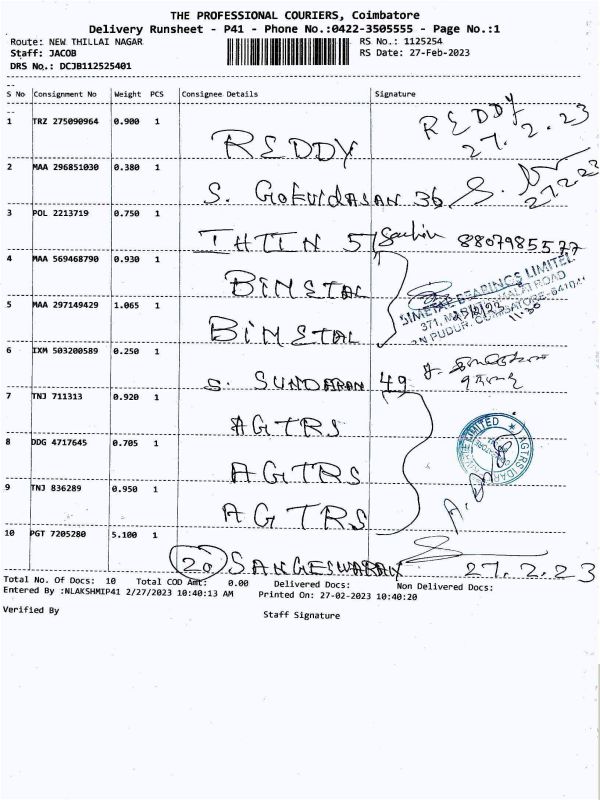 THE PROFESSIONAL COURIERS, Coimbatore
Delivery Runsheet - P41 - Phone No.:0422-3505555 - Page No.:1
Route: NEW THILLAI NAGAR RS No.: 1125254
Staff: JACOB RS Date: 27-Feb-2023
DRS No.: DCJB112525401
S No Consignment No Weight PCS Consignee Details Signature
1 TRZ 275090964 0.900 1 REDDY REDDY
27.2.23
2 MAA 296851030 0.380 1 S. 36 S.
27223
3 POL 2213719 0.750 1 57 8807985577
4 MAA 569468790 0.930 1 BIMETAL
BIMETAL BEARINGS LIMITED
5 MAA 297149429 1.065 1 BIMETAL
371,
COIMBATORE
6 IXM 503200589 0.250 1 S. SUNDARAN 49
7 TNJ 711313 0.920 1 AGTRS
8 DDG 4717645 0.705 1 AGTRS
LIMITED
AGTRS
9 TNJ 836289 0.950 1 AGTRS
10 PGT 7205280 5.100 1 20 SANGESWARAN 27.2.23
Total No. Of Docs: 10 Total COD Amt: 0.00 Delivered Docs: Non Delivered Docs:
Entered By :NLAKSHMIP41 2/27/2023 10:40:13 AM Printed On: 27-02-2023 10:40:20
Verified By Staff Signature